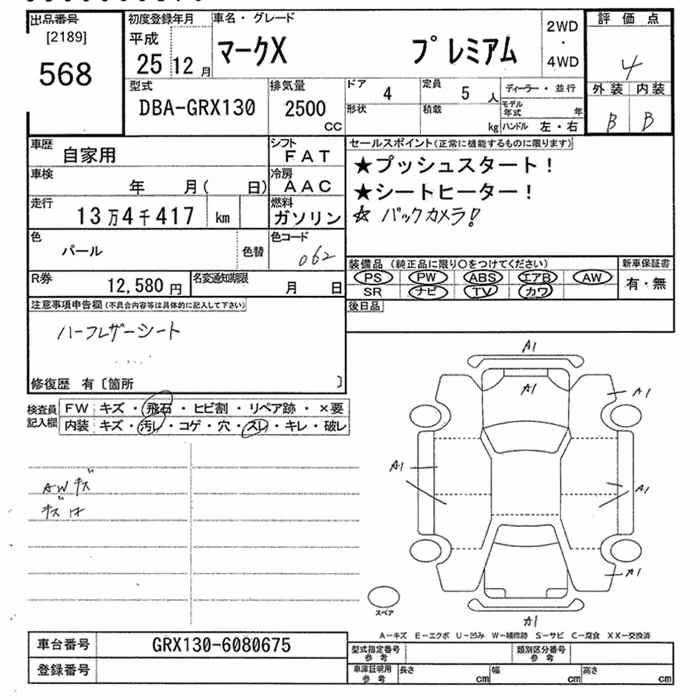 出品番号
[2189]
568
初度登録年月
平成
25 12 月
車名・グレード
マークX プレミアム
2WD
・
4WD
評価点
4
外装 内装
B B
型式
DBA-GRX130
排気量
2500
CC
ドア 4
定員 5 人
形状
積載 kg
ディーラー・並行
モデル年式 年
ハンドル 左・右
車歴 自家用
シフト FAT
車検 年 月( 日)
冷房 AAC
走行 13万4千417 km
燃料 ガソリン
色 パール 色替
色コード 062
R券 12,580 円
名変通知期限 月 日
セールスポイント(正常に機能するものに限ります)
★プッシュスタート!
★シートヒーター!
☆ バックカメラ!
装備品 (純正品に限り○をつけてください)
新車保証書
PS PW ABS エアB AW
SR ナビ TV カワ
有・無
後日品
注意事項申告欄(不具合内容等は具体的に記入して下さい)
ハーフレザーシート
修復歴 有〔箇所 〕
検査員記入欄
FW キズ・飛石・ヒビ割・リペア跡・×要
内装 キズ・汚レ・コゲ・穴・スレ・キレ・破レ
AWキズ
A1
A1
A1
A1
A1
A1
A1
スペア
A－キズ E－エクボ U－凹み W－補修跡 S－サビ C－腐食 XX－交換済
車台番号 GRX130-6080675
登録番号
型式指定番号
参考
類別区分番号
参考
車庫証明用
参考
長さ cm
幅 cm
高さ cm